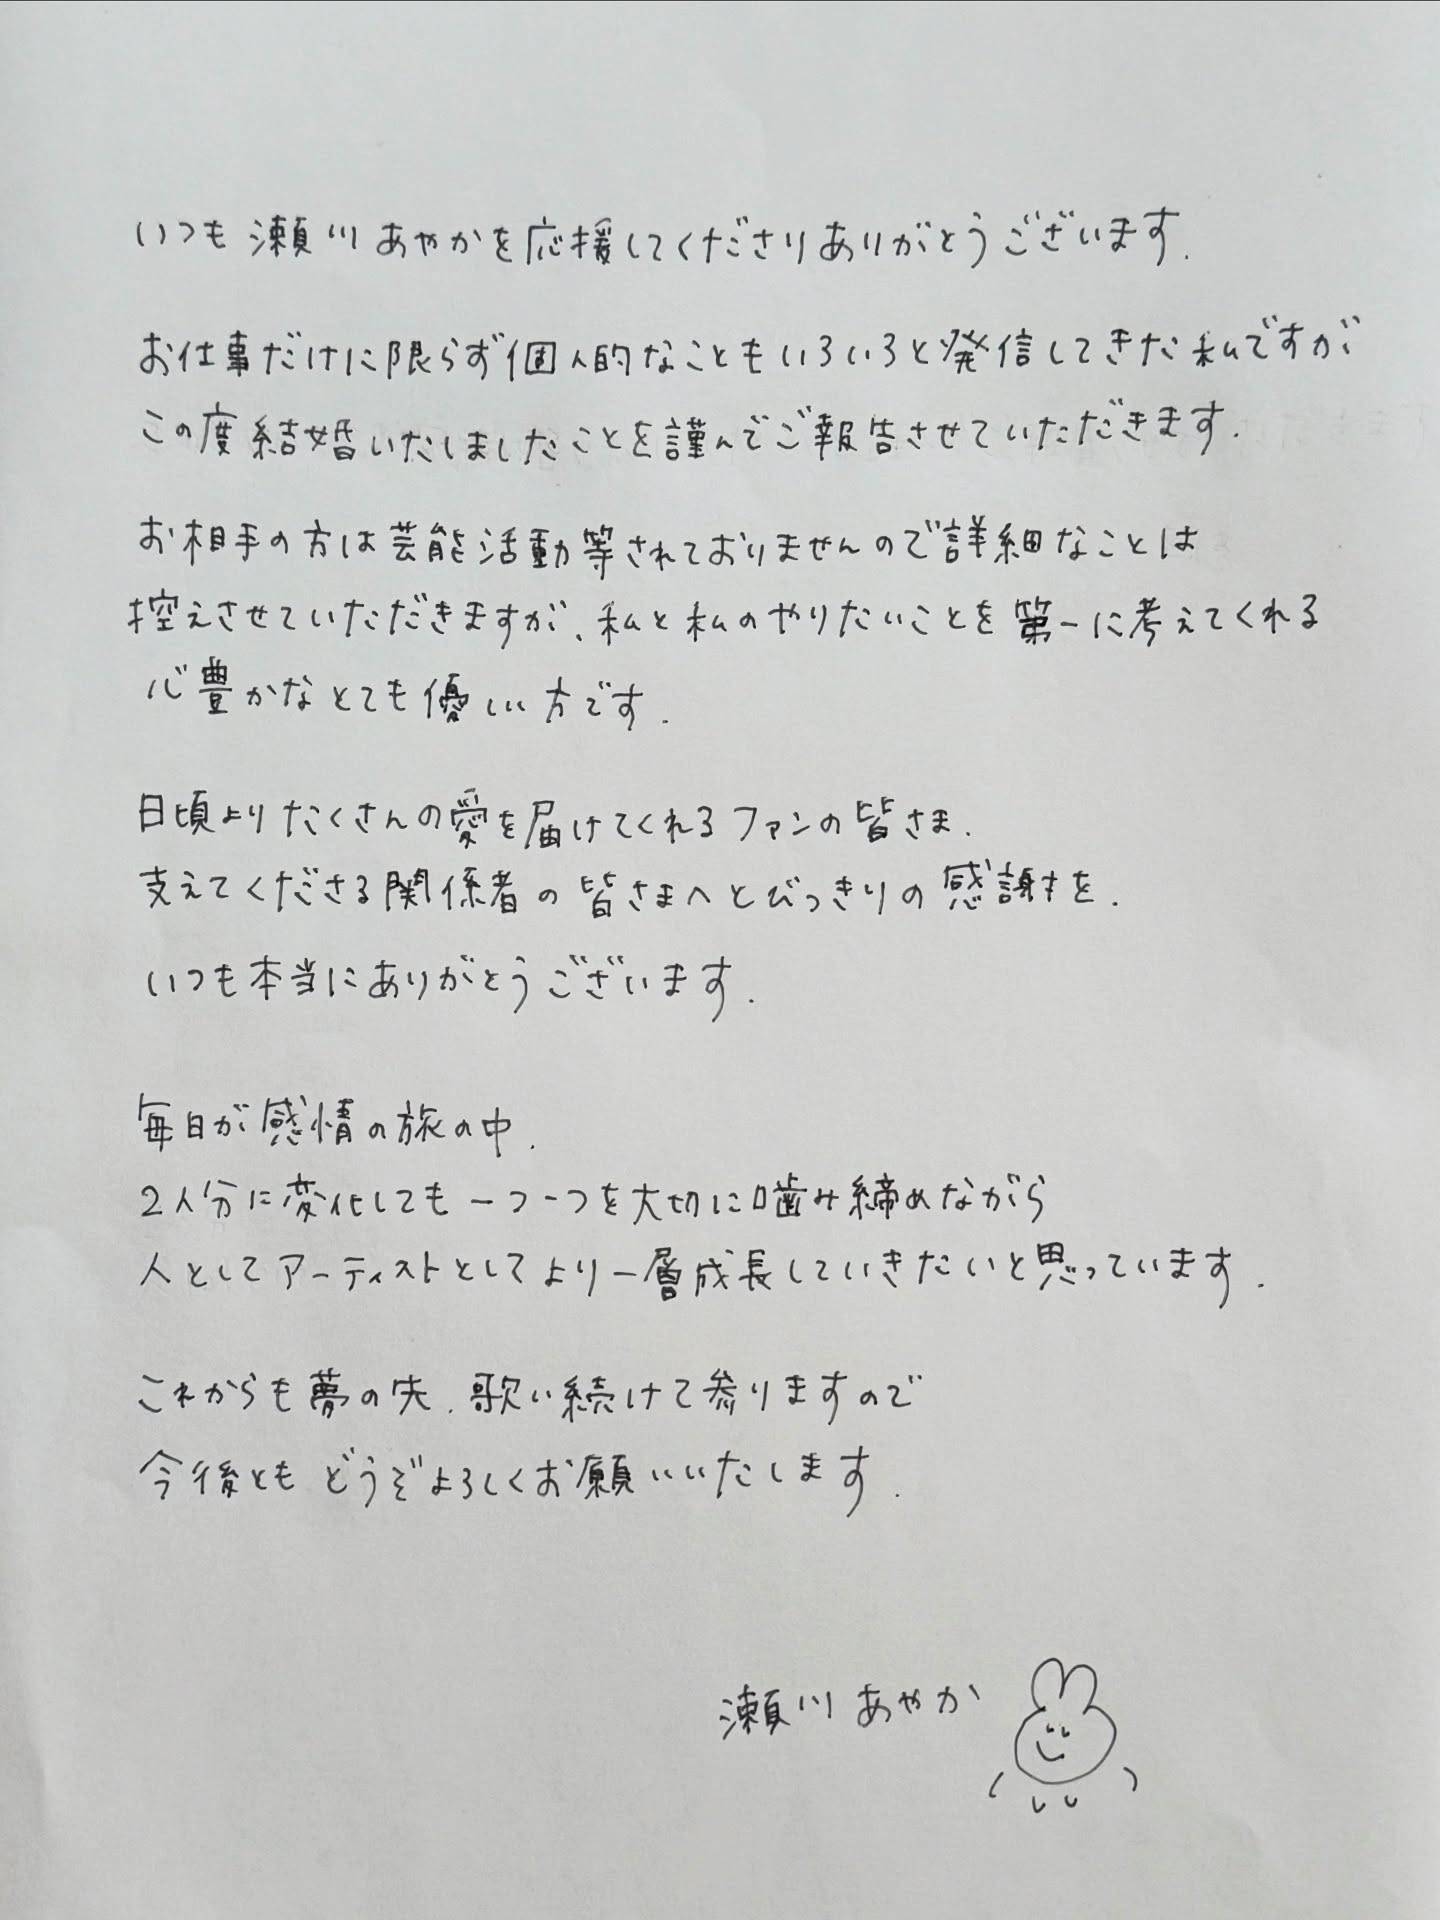 いつも瀬川あやかを応援してくださりありがとうございます.
お仕事だけに限らず個人的なこともいろいろと発信してきた私ですが
この度結婚いたしましたことを謹んでご報告させていただきます.
お相手の方は芸能活動等されておりませんので詳細なことは
控えさせていただきますが、私と私のやりたいことを第一に考えてくれる
心豊かなとても優しい方です.
日頃よりたくさんの愛を届けてくれるファンの皆さま.
支えてくださる関係者の皆さまへとびっきりの感謝を.
いつも本当にありがとうございます.
毎日が感情の旅の中.
2人分に変化しても一つ一つを大切に噛み締めながら
人としてアーティストとしてより一層成長していきたいと思っています.
これからも夢の先.歌い続けて参りますので
今後ともどうぞよろしくお願いいたします.
瀬川あやか